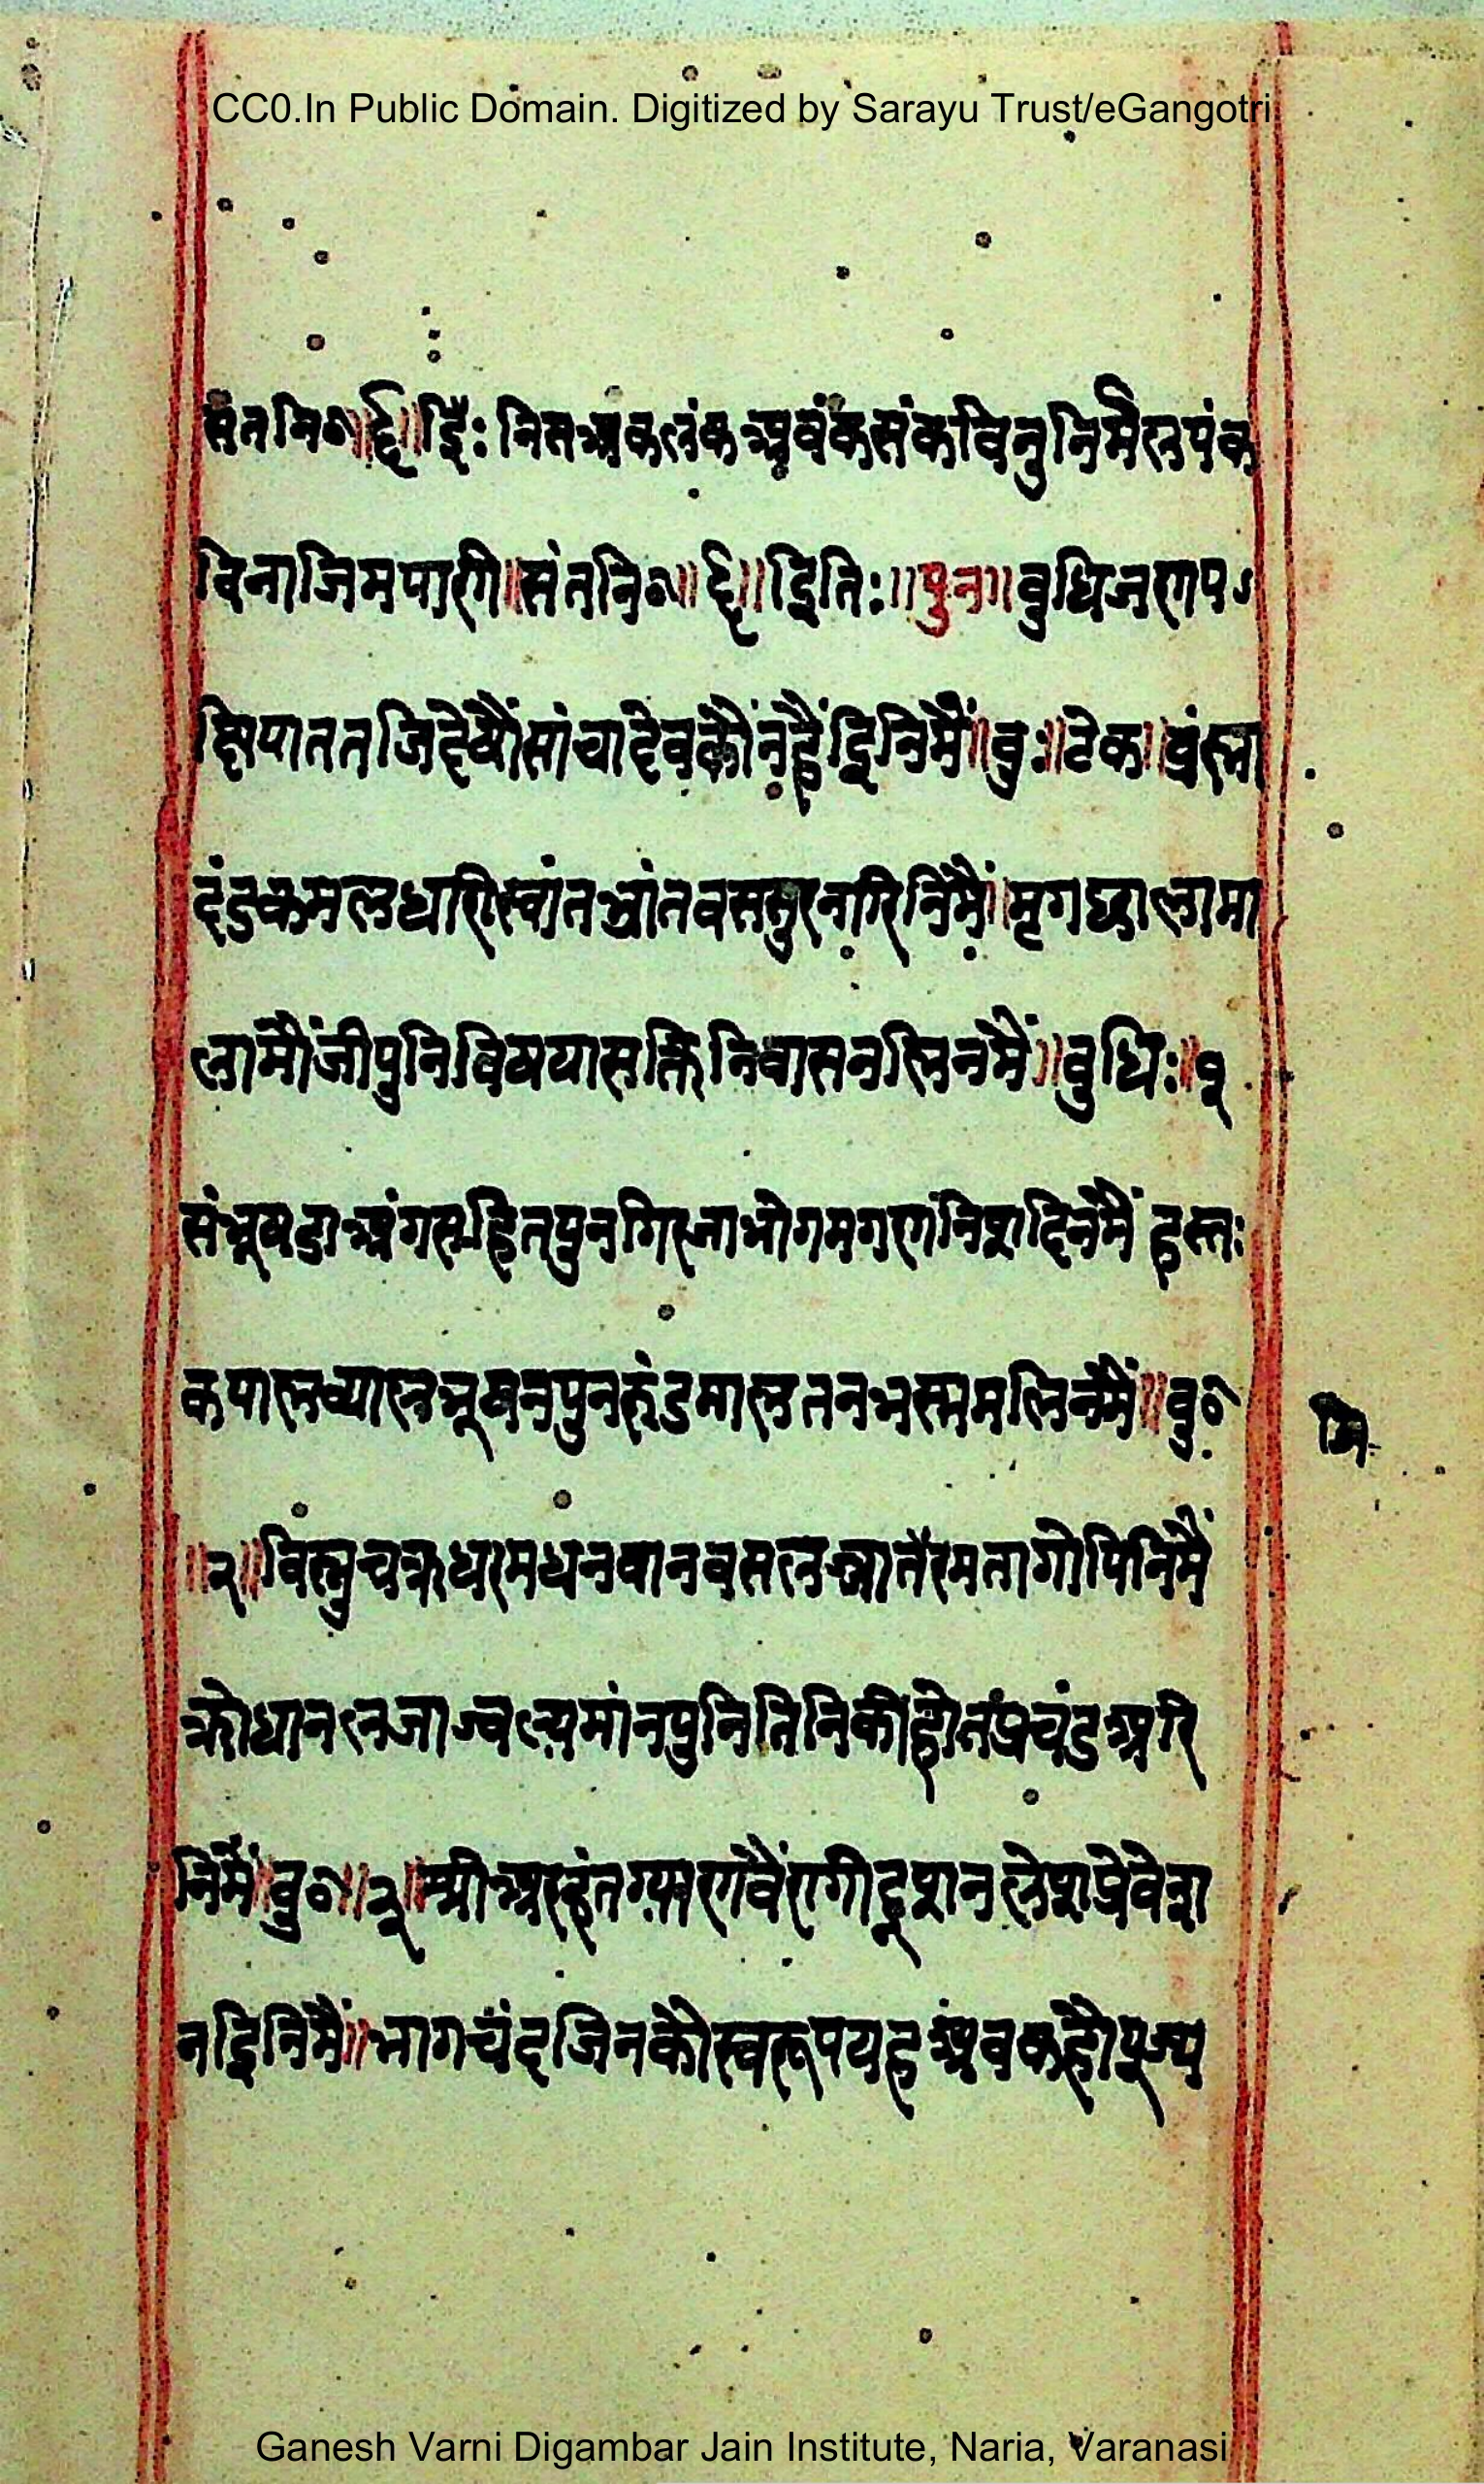 CC0.In Public Domain. Digitized by Sarayu Trust/eGangotri
संतनि०॥६॥द्वि: निसअकलंकअवंकसंकविनुनिर्मैलपंक
विनाजिमपारगी॥संतनि०॥६॥द्विति:॥पुन॥बुधिजरगप
तजिदेषौंसांचादेवकौंनहैंद्विनिमैं॥बु:॥टेक॥ब्रंह्मा
दंडकमलधारीस्वांतभ्रांतवससुरनारिनिमैं॥मृगछालामा
लामौंजीपुनिविषयासक्तिनिवासनलिनमैं॥बुधि:॥१
संभूषट्वाअंगसहितपुनगिरजाभोगमगरगंनिशदिनमैं हस्त:
कपालव्यालभूषनपुनरुंडमालतनभस्ममलिनमैं॥बु०
॥२॥विस्नुचक्रधरमधनवानवसलज्यातैरमतागोपिनिमैं
क्रोधानलजाज्वल्यमांनपुनितिनिकीहोतप्रचंडअरि
निमैं॥बु०॥३॥श्रीअरहंत
नद्विनिमैं॥भागचंदजिनकौस्वरूपयहअबकहौपूज्य
मि
Ganesh Varni Digambar Jain Institute, Naria, Varanasi